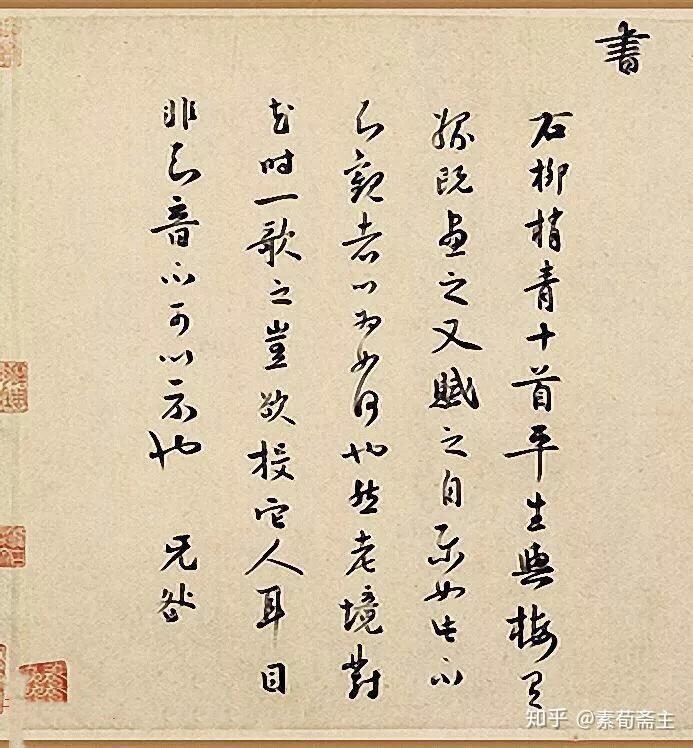 書
右柳梢青十首平生與梅有
緣既畫之又賦之自樂如此不
知觀者以為如何也然老境對
花時一歌之豈欲投它人耳目
非知音不可以示也 无咎
知乎 @素荀斋主